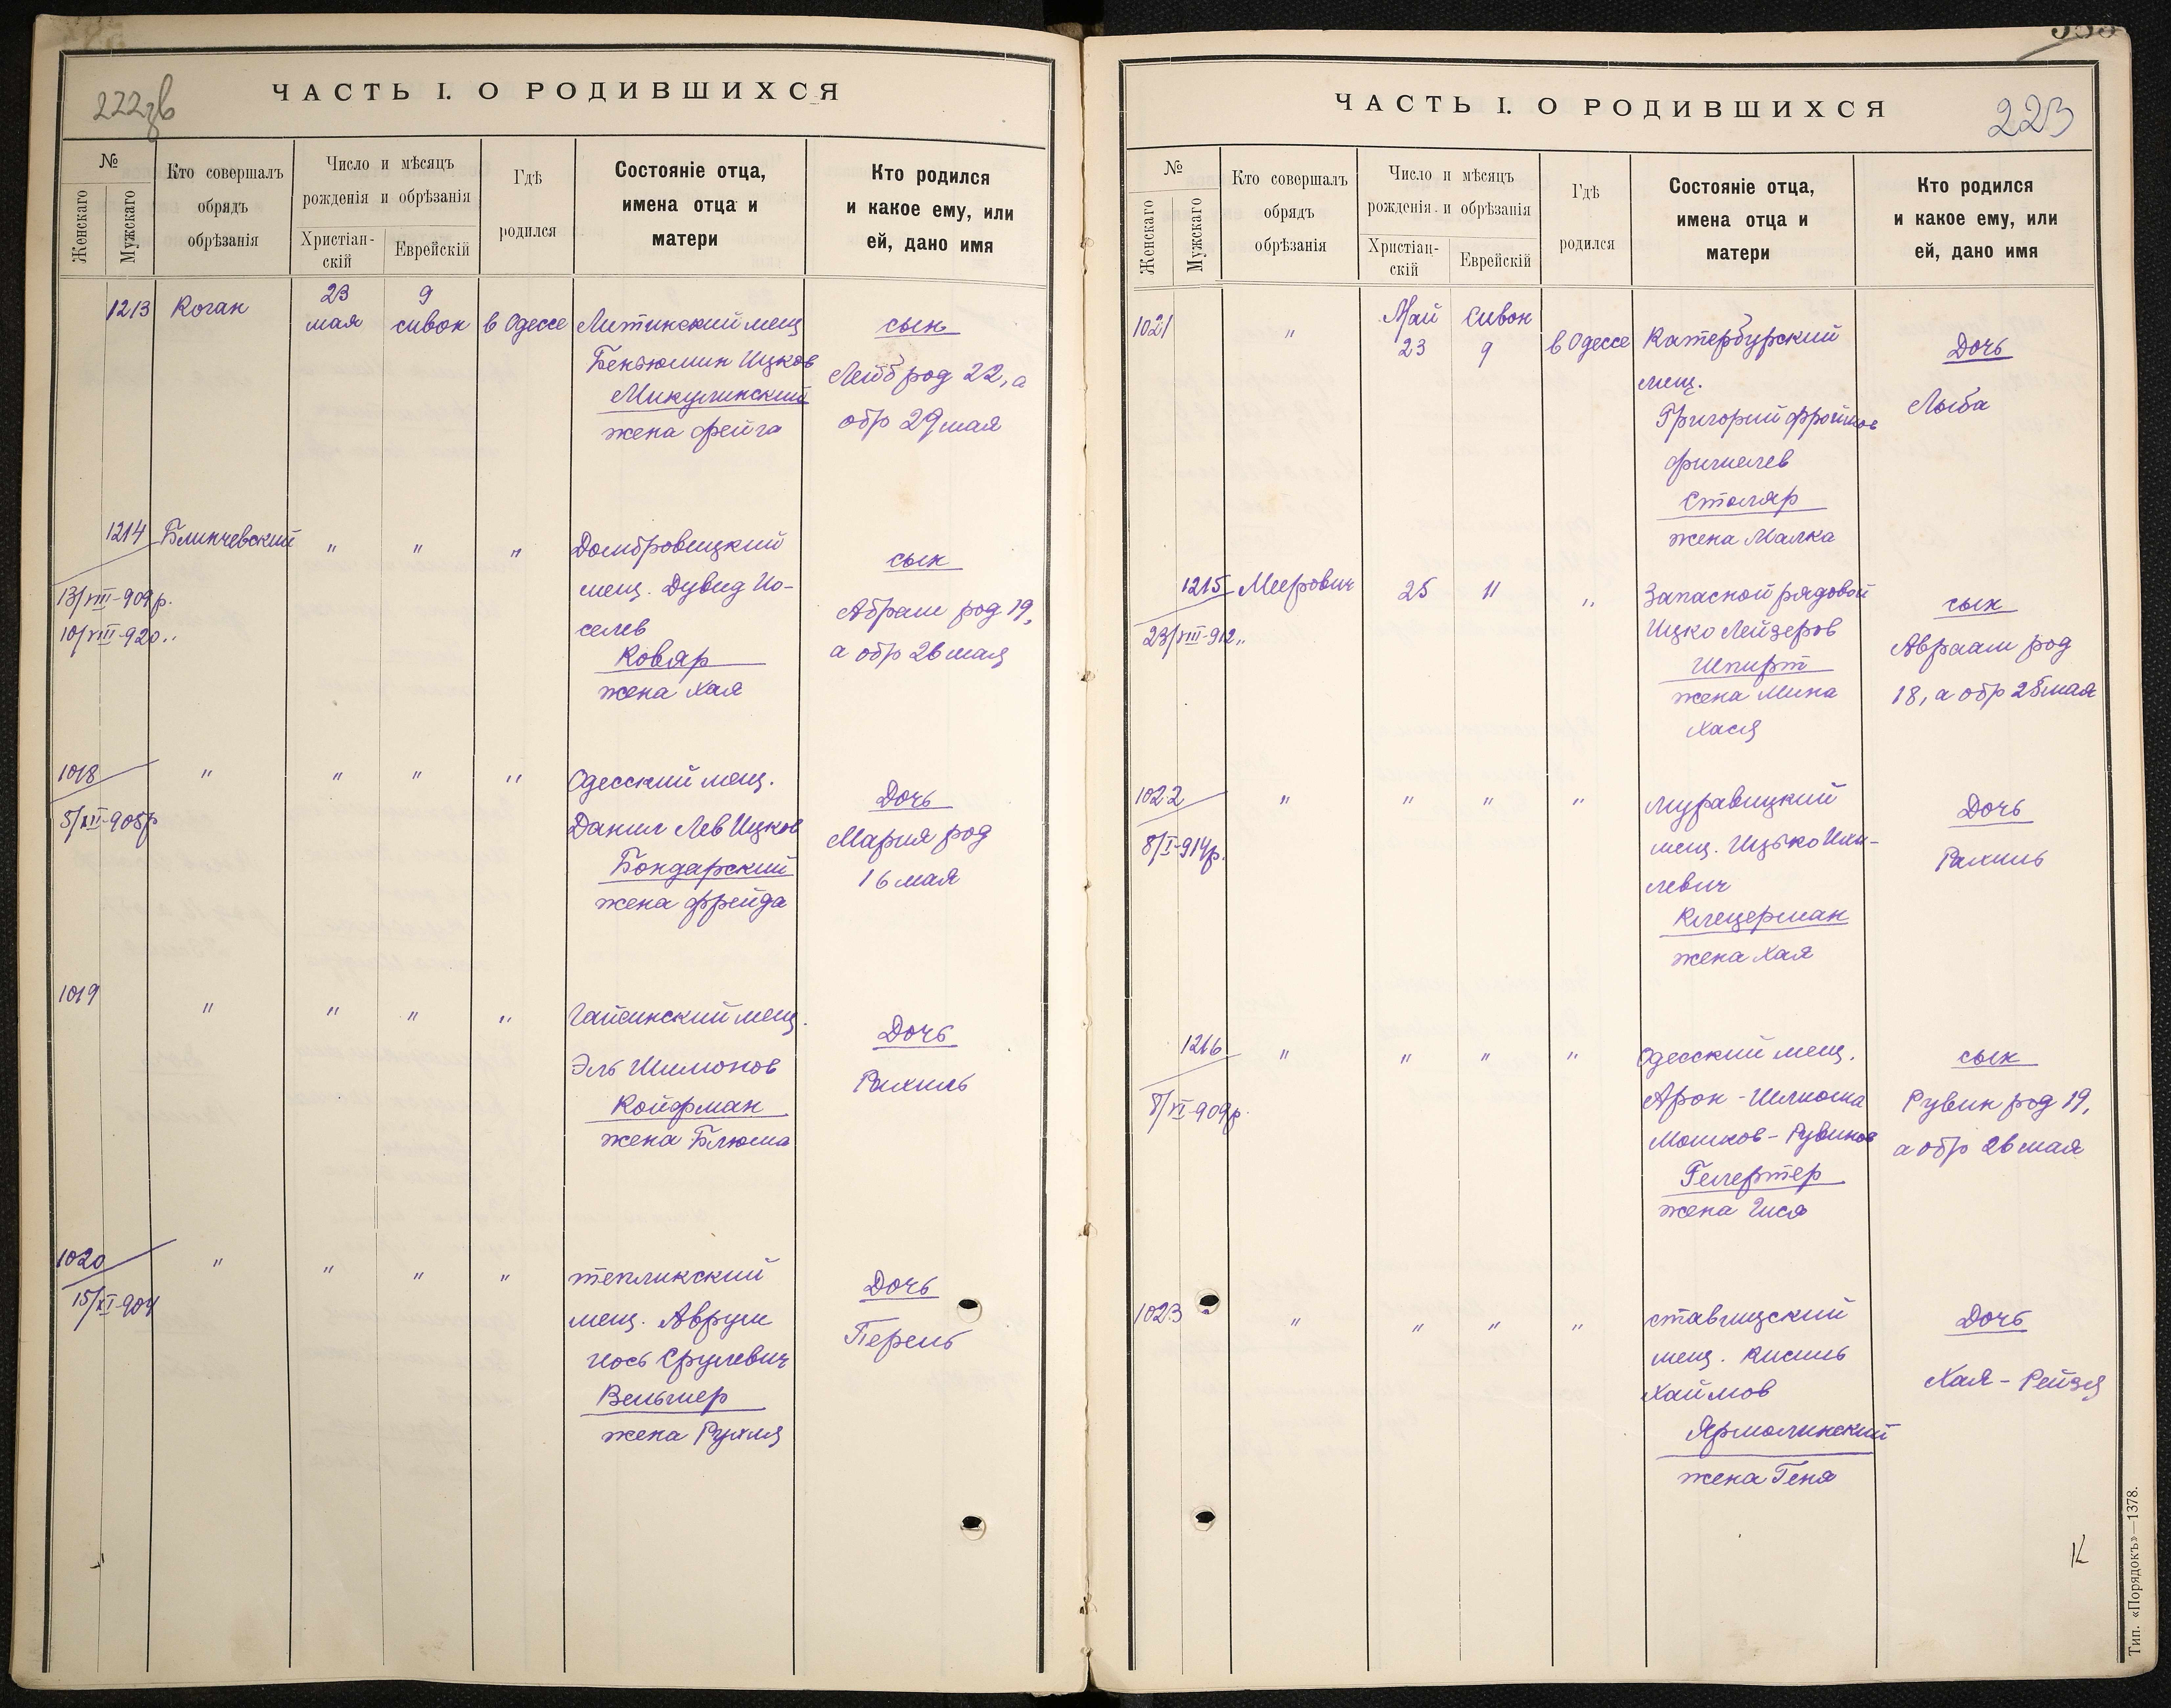 222 зв
ЧАСТЬ I. О РОДИВШИХСЯ
№
Женскаго
Мужскаго
Кто совершалъ
обрядъ
обрѣзанія
Число и мѣсяцъ
рожденія и обрѣзанія
Христіан-
скій
Еврейскій
Гдѣ
родился
Состояніе отца,
имена отца и
матери
Кто родился
и какое ему, или
ей, дано имя
1213 Коган 23 мая 9 сивон в Одессе
Литинский мещ
Беньюмин Ицков
Микулинский
жена Фейга
сын
Лейб род 22, а
обр 29 мая
1214 Блинчевский " " "
13/VIII-909 р.
10/VIII-920 "
Домбровицкий
мещ. Дувид Ио-
селев
Ковар
жена Хая
сын
Абрам род 19,
а обр 26 мая
1018 " " " "
5/XII-908 р
Одесский мещ.
Данил Лев Ицков
Бондарский
жена Фрейда
Дочь
Мария род
16 мая
1019 " " " "
Гайсинский мещ.
Эль Шимонов
Койфман
жена Блюма
Дочь
Рахиль
1020 " " " "
15/XI-904
тепликский
мещ. Аврум
Иось Срулевич
Вельчер
жена Рухля
Дочь
Перель
ЧАСТЬ I. О РОДИВШИХСЯ
223
№
Женскаго
Мужскаго
Кто совершалъ
обрядъ
обрѣзанія
Число и мѣсяцъ
рожденія и обрѣзанія
Христіан-
скій
Еврейскій
Гдѣ
родился
Состояніе отца,
имена отца и
матери
Кто родился
и какое ему, или
ей, дано имя
1021 " Май 23 Сивон 9 в Одессе
Катербурский
мещ.
Григорий Фроймов
Фишелев
Столяр
жена Малка
Дочь
Лыба
1215 Меерович 25 11 "
23/VIII-912 "
Запасной рядовой
Ицко Лейзеров
Шпирт
жена Мина
Хася
сын
Авраам род
18, а обр 25 мая
1022 " " " "
8/I-914 р.
Муравицкий
мещ. Ицько Ихи-
левич
Клецерман
жена Хая
Дочь
Рахиль
1216 " " " "
8/XI-909 р.
Одесский мещ.
Арон-Шлиома
Мошков-Рувинов
Гелертер
жена Гися
сын
Рувин род 19,
а обр 26 мая
1023 " " " "
ставищский
мещ. Кисиль
Хаимов
Ярмолинский
жена Геня
Дочь
Хая-Рейзя
Тип. «Порядокъ»—1378.